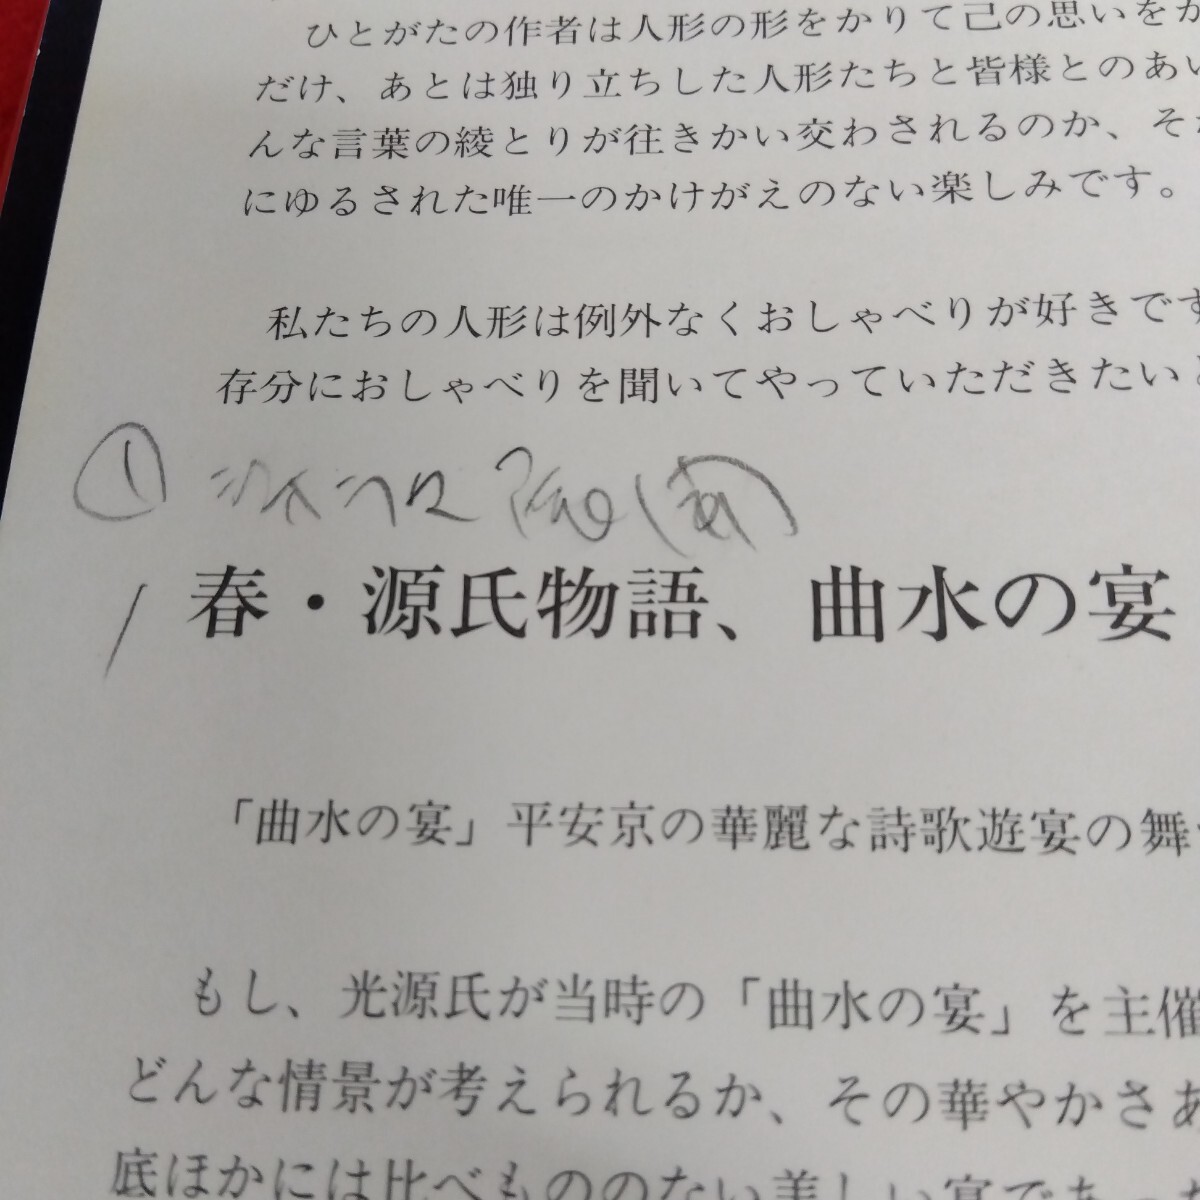 ひとがたの作者は人形の形をかりて己の思いをか
だけ、あとは独り立ちした人形たちと皆様とのあい
んな言葉の綾とりが往きかい交わされるのか、それ
にゆるされた唯一のかけがえのない楽しみです。
私たちの人形は例外なくおしゃべりが好きです
存分におしゃべりを聞いてやっていただきたいと
①
春・源氏物語、曲水の宴
「曲水の宴」平安京の華麗な詩歌遊宴の舞
もし、光源氏が当時の「曲水の宴」を主催
どんな情景が考えられるか、その華やかさあ
底ほかには比べもののない美しい宴であ